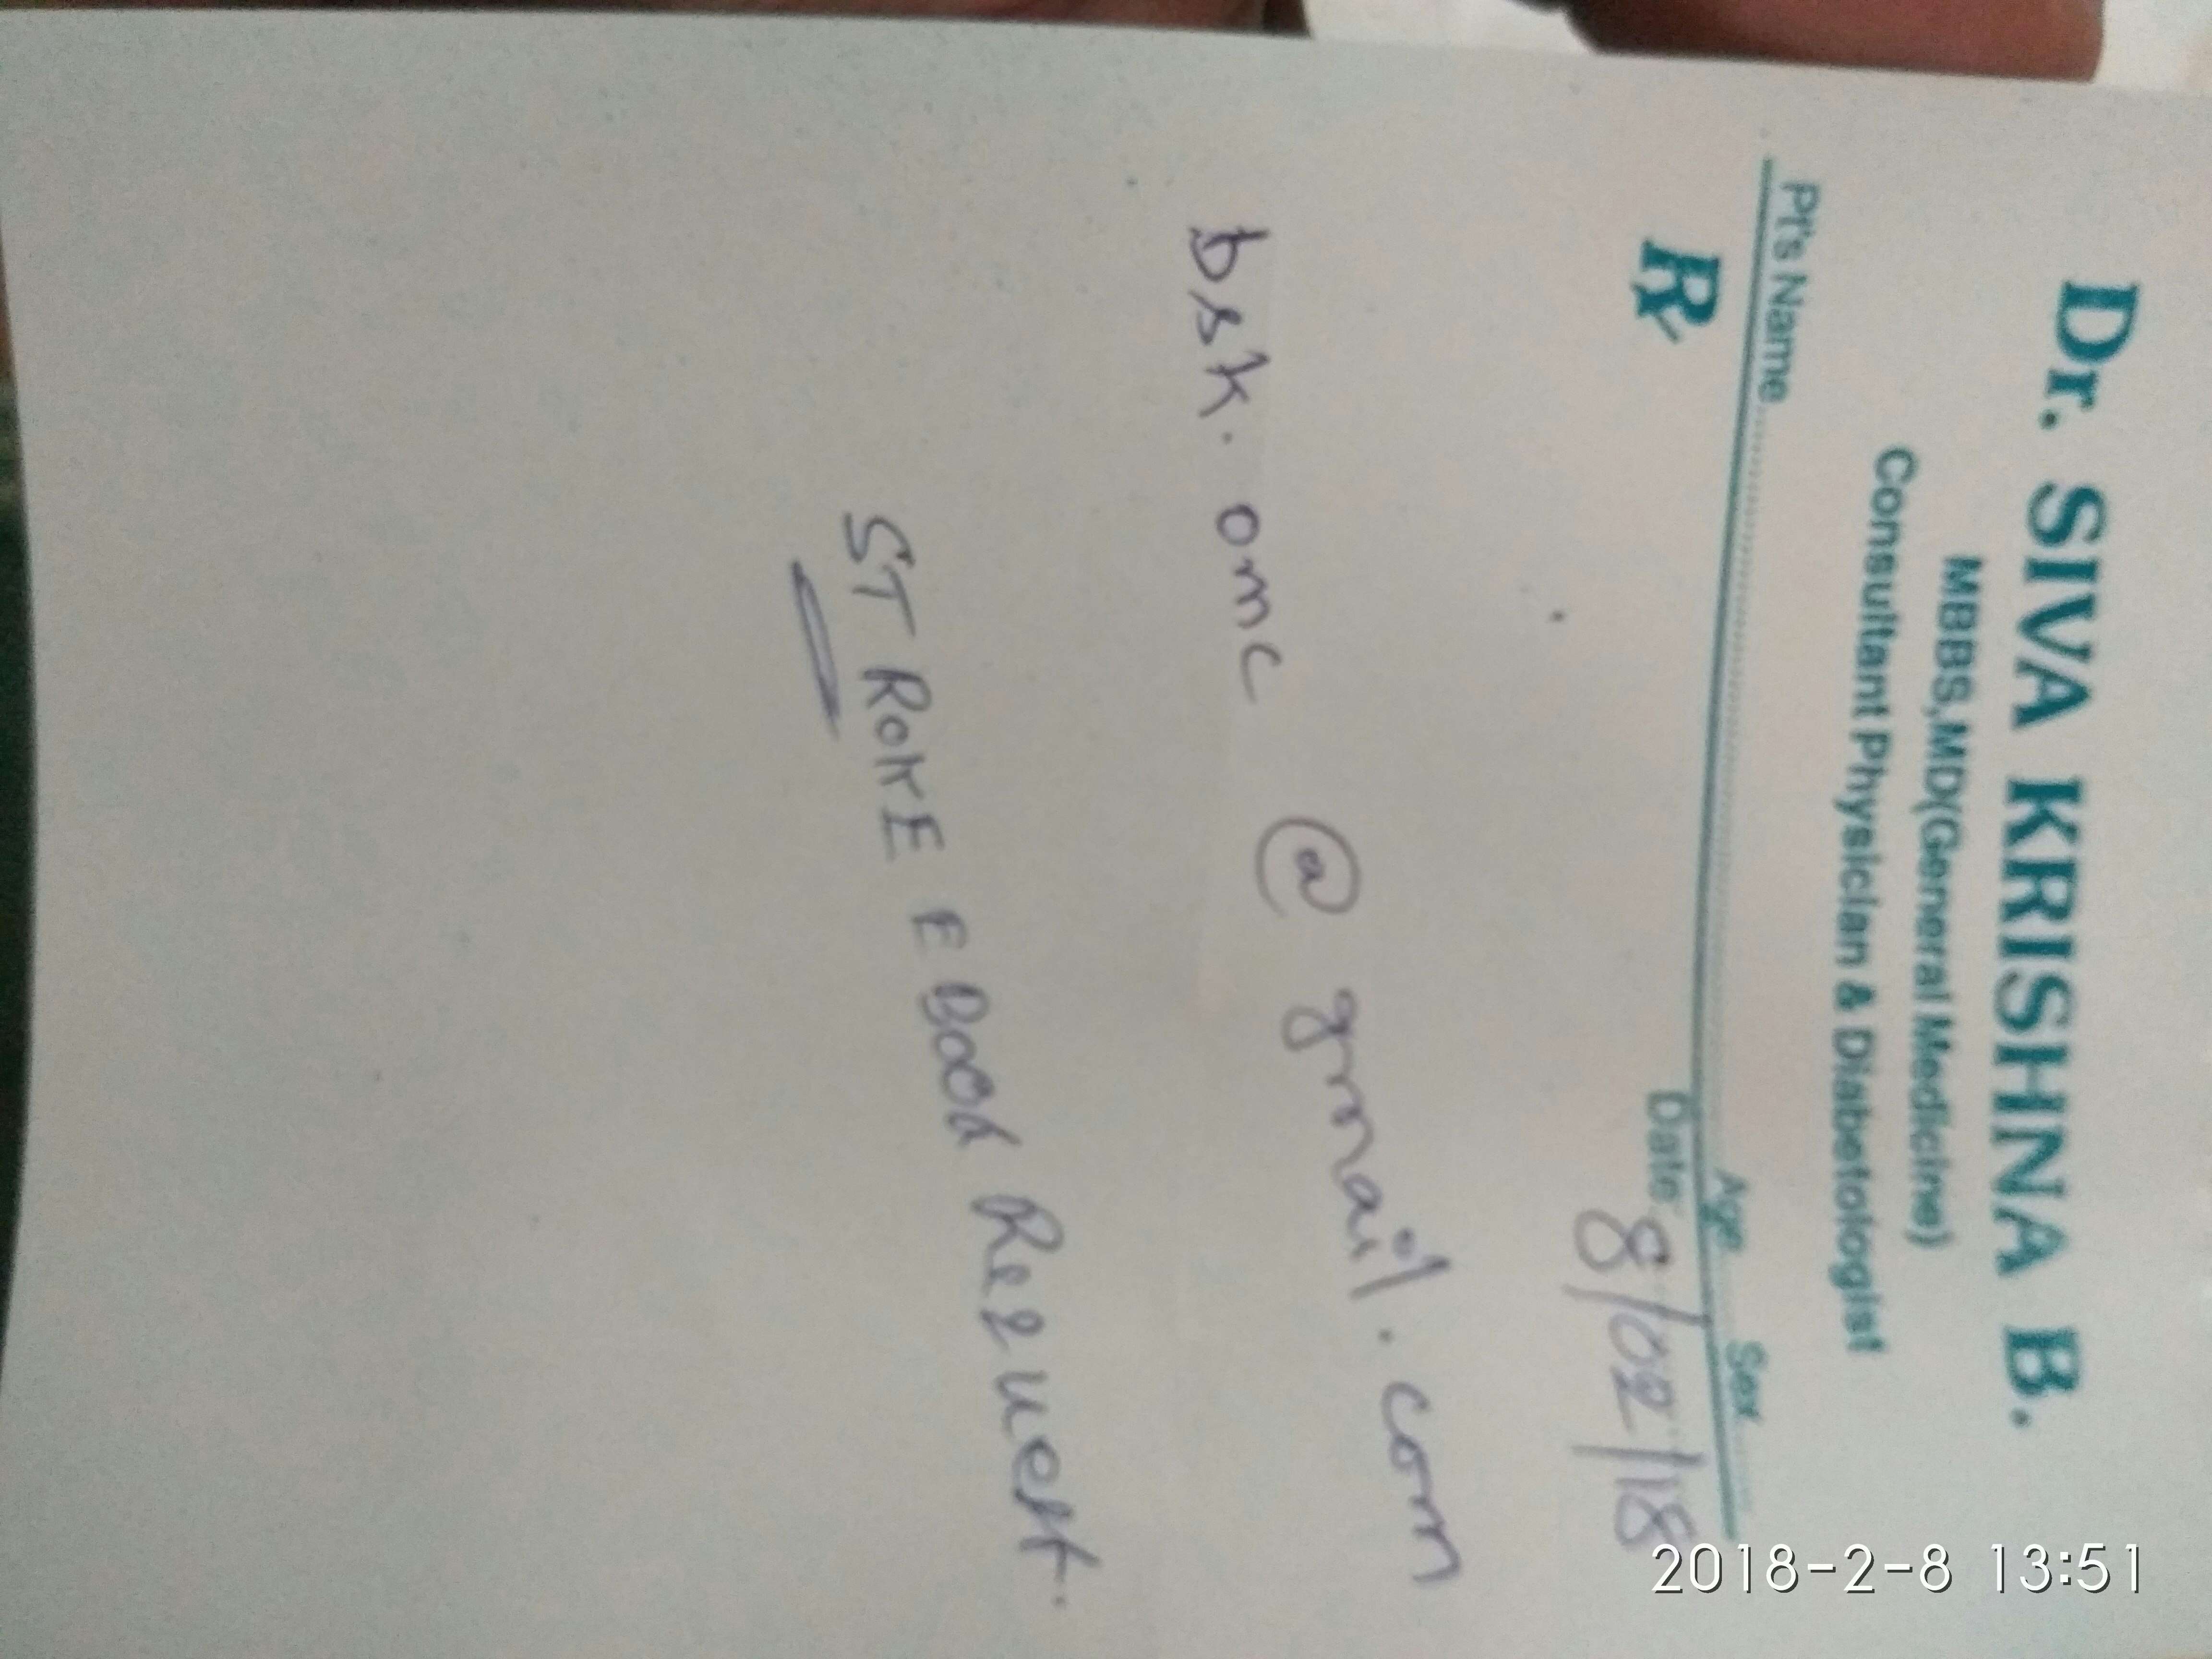 Dr. SIVA KRISHNA B.
MBBS,MD(General Medicine)
Consultant Physician & Diabetologist
Pt's Name Age Sex
Date 8/02/18
Rx
bsk.omc @ gmail.com
STROKE EBook Request.
2018-2-8 13:51